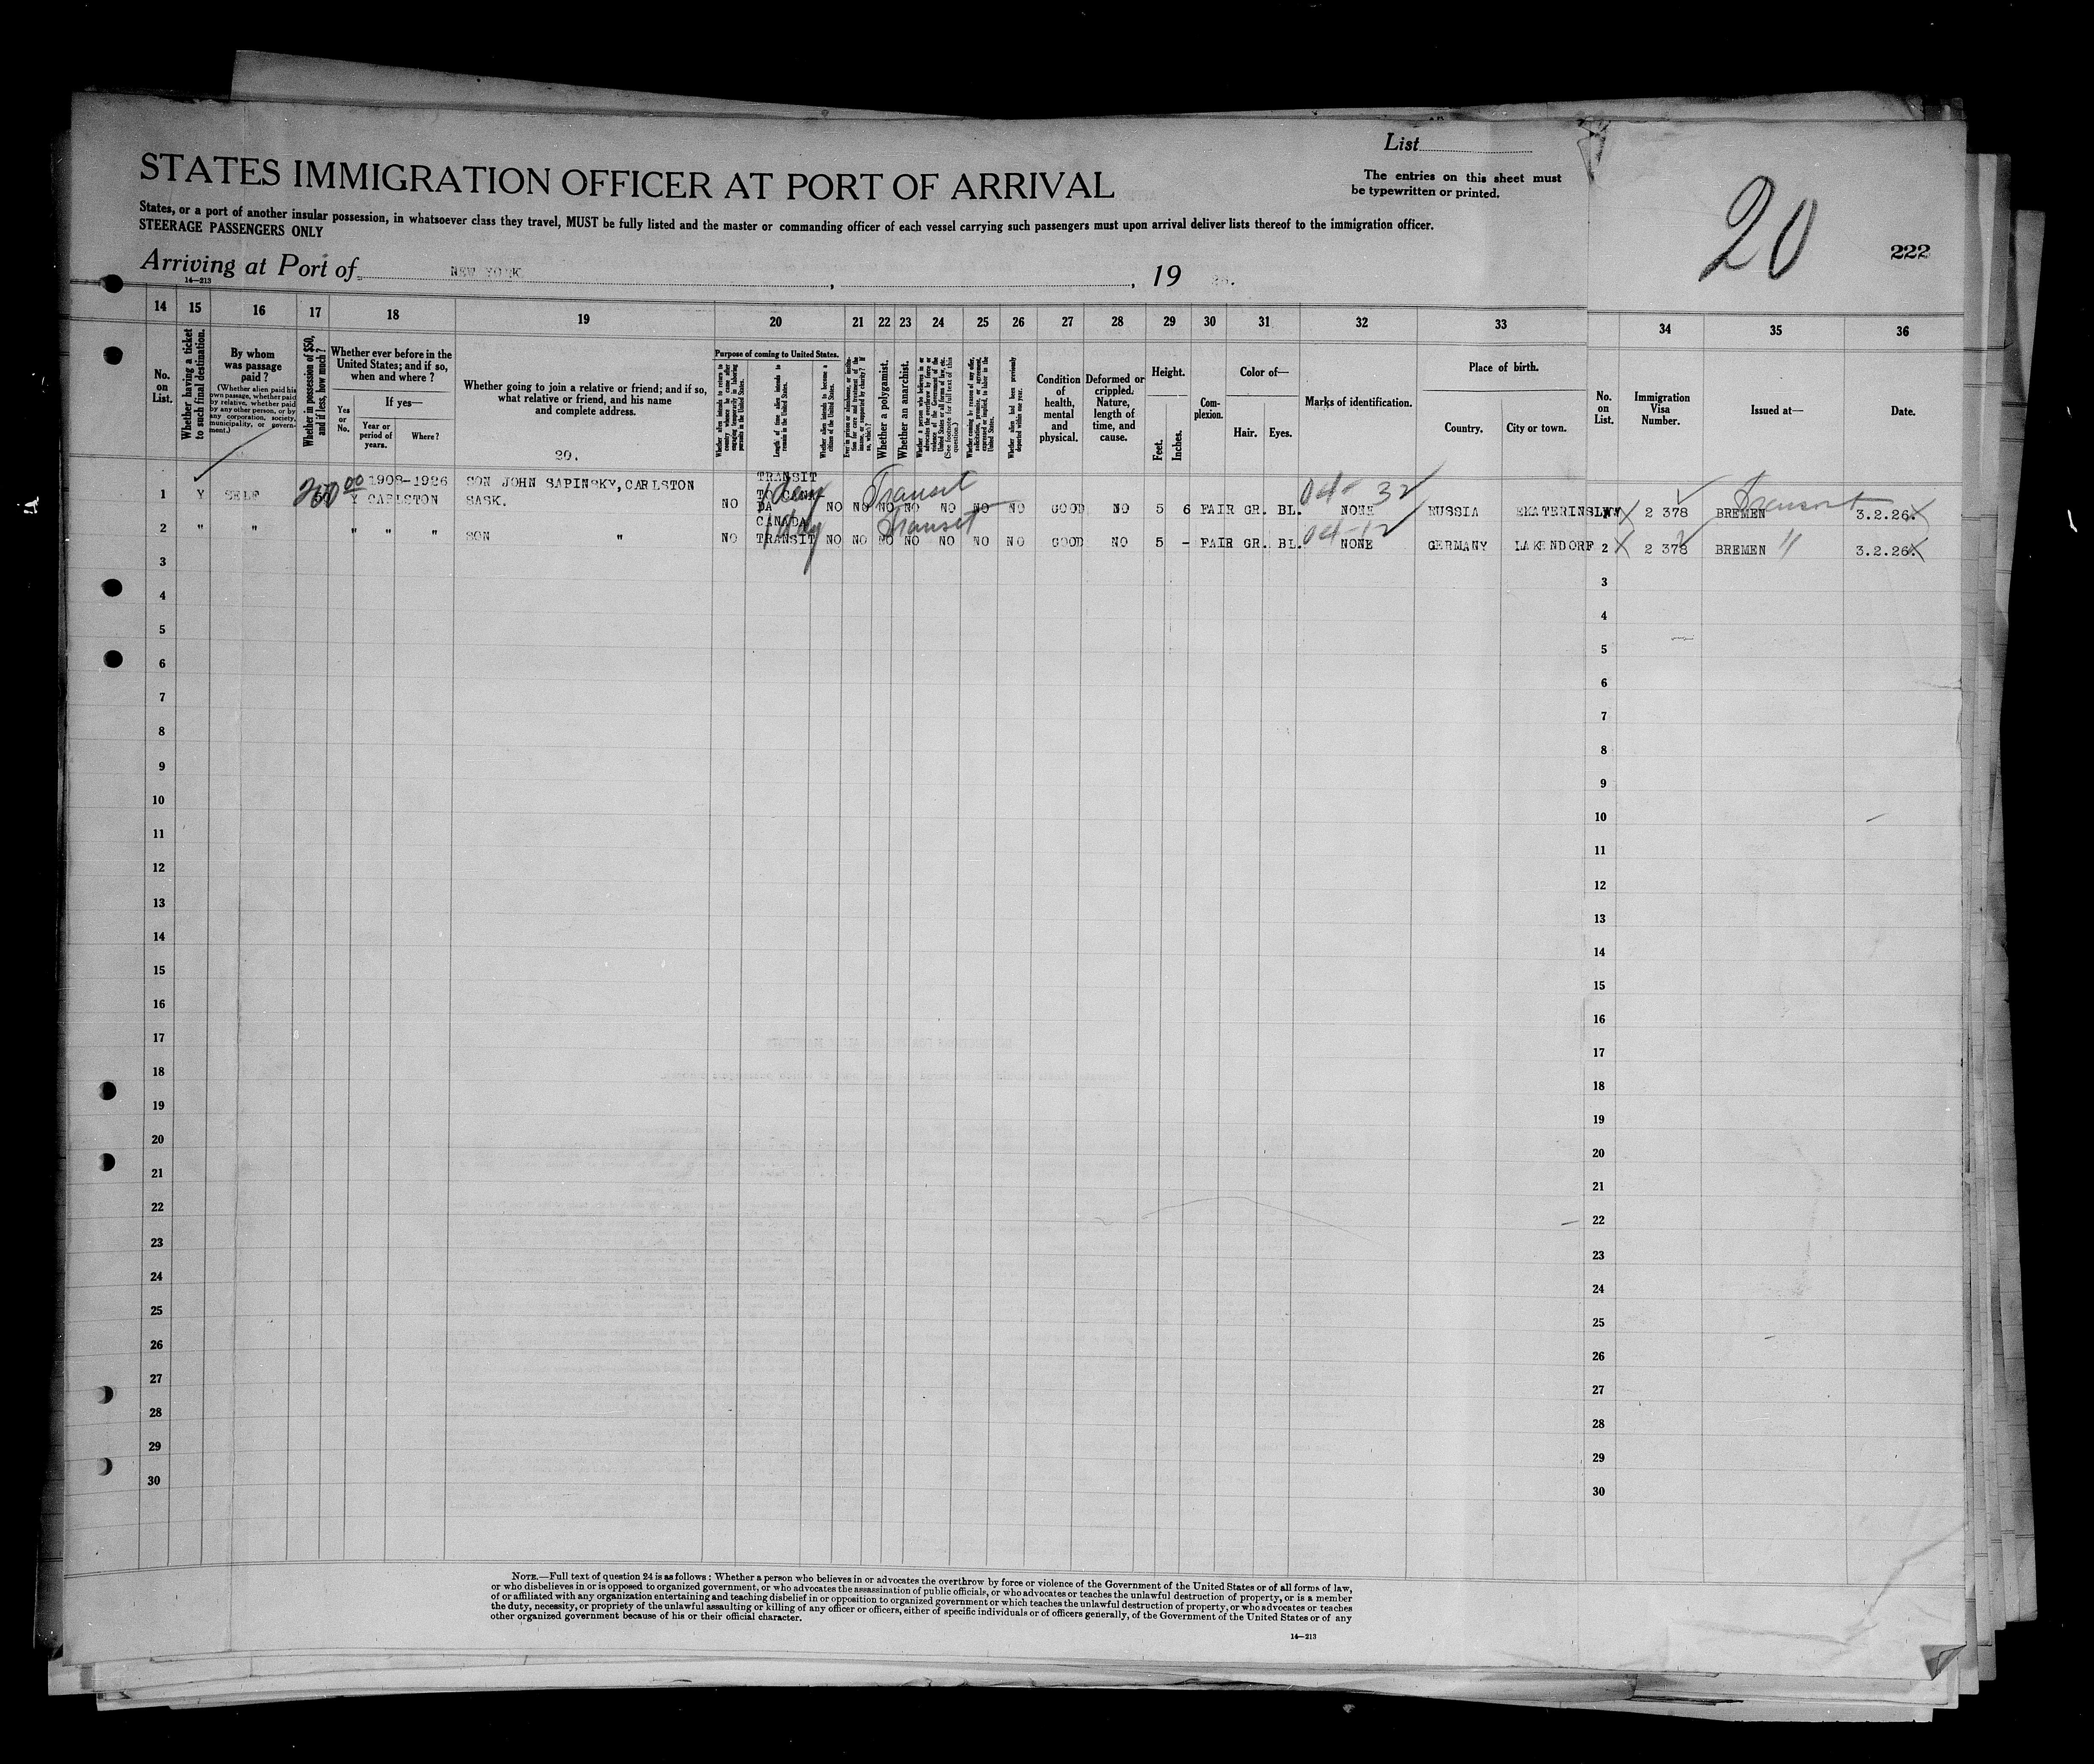 List
STATES IMMIGRATION OFFICER AT PORT OF ARRIVAL
The entries on this sheet must
be typewritten or printed.
States, or a port of another insular possession, in whatsoever class they travel, MUST be fully listed and the master or commanding officer of each vessel carrying such passengers must upon arrival deliver lists thereof to the immigration officer.
STEERAGE PASSENGERS ONLY
20
222
Arriving at Port of NEW YORK, , 19 26.
14—213
14 15 16 17 18 19 20 21 22 23 24 25 26 27 28 29 30 31 32 33 34 35 36
No. on List.
Whether having a ticket to such final destination.
By whom was passage paid?
(Whether alien paid his own passage, whether paid by relative, whether paid by any other person, or by any corporation, society, municipality, or government.)
Whether in possession of $50, and if less, how much?
Whether ever before in the United States; and if so, when and where?
Yes or No.
If yes—
Year or period of years.
Where?
Whether going to join a relative or friend; and if so, what relative or friend, and his name and complete address.
20.
Purpose of coming to United States.
Whether alien intends to return to country whence he came after engaging temporarily in laboring pursuits in the United States.
Length of time alien intends to remain in the United States.
Whether alien intends to become a citizen of the United States.
Ever in prison or almshouse, or institution for care and treatment of the insane, or supported by charity? If so, which?
Whether a polygamist.
Whether an anarchist.
Whether a person who believes in or advocates the overthrow by force or violence of the Government of the United States or all forms of law, etc. (See footnote for full text of this question.)
Whether coming by reason of any offer, solicitation, promise, or agreement, expressed or implied, to labor in the United States.
Whether alien had been previously deported within one year.
Condition of health, mental and physical.
Deformed or crippled. Nature, length of time, and cause.
Height.
Feet.
Inches.
Complexion.
Color of—
Hair.
Eyes.
Marks of identification.
Place of birth.
Country.
City or town.
No. on List.
Immigration Visa Number.
Issued at—
Date.
1 Y SELF 200 00 50 Y 1908-1926 CARLSTON SON JOHN SAPINSKY, CARLSTON SASK. NO TRANSIT TO CANADA 1 day NO NO NO NO NO NO NO Transit GOOD NO 5 6 FAIR GR. BL. NONE RUSSIA EKATERINSLWW 2 378 BREMEN Transit 3.2.26.
2 " " " " " SON " NO CANADA TRANSIT 1 day NO NO NO NO NO NO NO Transit GOOD NO 5 - FAIR GR. BL. NONE GERMANY LAKENDORF 2 2 378 BREMEN " 3.2.26.
3 3
4 4
5 5
6 6
7 7
8 8
9 9
10 10
11 11
12 12
13 13
14 14
15 15
16 16
17 17
18 18
19 19
20 20
21 21
22 22
23 23
24 24
25 25
26 26
27 27
28 28
29 29
30 30
NOTE.—Full text of question 24 is as follows: Whether a person who believes in or advocates the overthrow by force or violence of the Government of the United States or of all forms of law,
or who disbelieves in or is opposed to organized government, or who advocates the assassination of public officials, or who advocates or teaches the unlawful destruction of property, or is a member
of or affiliated with any organization entertaining and teaching disbelief in or opposition to organized government or which teaches the unlawful destruction of property, or who advocates or teaches
the duty, necessity, or propriety of the unlawful assaulting or killing of any officer or officers, either of specific individuals or of officers generally, of the Government of the United States or of any
other organized government because of his or their official character.
14—213